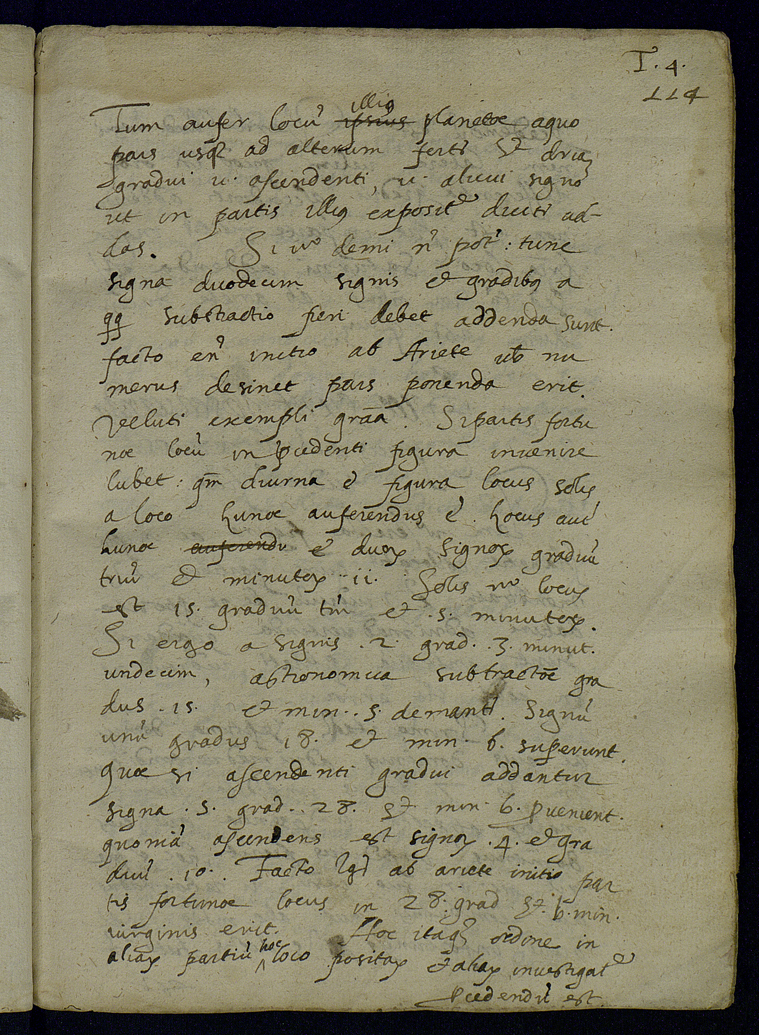 I. 4.
114
Tum aufer locũ illiq̃ ipsius planetæ a quo
pars usq̃ ad alterum fertr̃ et dr̃ia
gradui ũ ascendenti, ũ alicui signo
ut in partis illiq̃ exposit̃e dicitr̃ ad-
das. Si ṽo demi ñ pot̃: tunc
signa duodecim signis et gradibq̃ a
qq̃ subtractio fieri debet addenda sunt.
facto eñ initio ab Ariete ubi nu
merus desinet pars ponenda erit.
Velluti exempli gr̃a. Si partis fortu
næ locũ in p̃cedenti figura invenire
lubet: qm̃ diurna ẽ figura locus solis
a loco lunæ auferendus ẽ. Locus aut̃
lunæ auferendu ẽ duoꝝ signoꝝ graduũ
triũ et minutoꝝ ii. Solis ṽo locus
est 15. graduũ tm̃ et .5. minutoꝝ.
Si ergo a signis .2. grad. 3. minut.
undecim, astronomica subtractõe gra
dus .15. et min. .5. demantr̃. Signũ
unũ gradus 18. et min. 6. superunt.
quæ si ascendenti gradui addantur
signa .5. grad. .28. et min. 6. p̃venient.
quoniã ascendens est signoꝝ .4. et gra
duũ .10. Facto igr̃ ab ariete initio par
tis fortunæ locus in 28. grad et .6. min.
virginis erit. Hoc itaq̃ ordine in
aliaꝝ partiũ hoc loco positaꝝ et aliaꝝ investigat̃e
p̃cedendũ est.